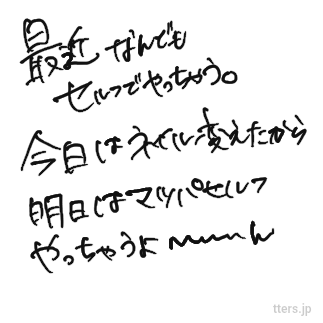 最近なんでも
セルフでやっちゃう。
今日はネイル変えたから
明日はマツパセルフ
やっちゃうよ〜〜〜ん
tters.jp